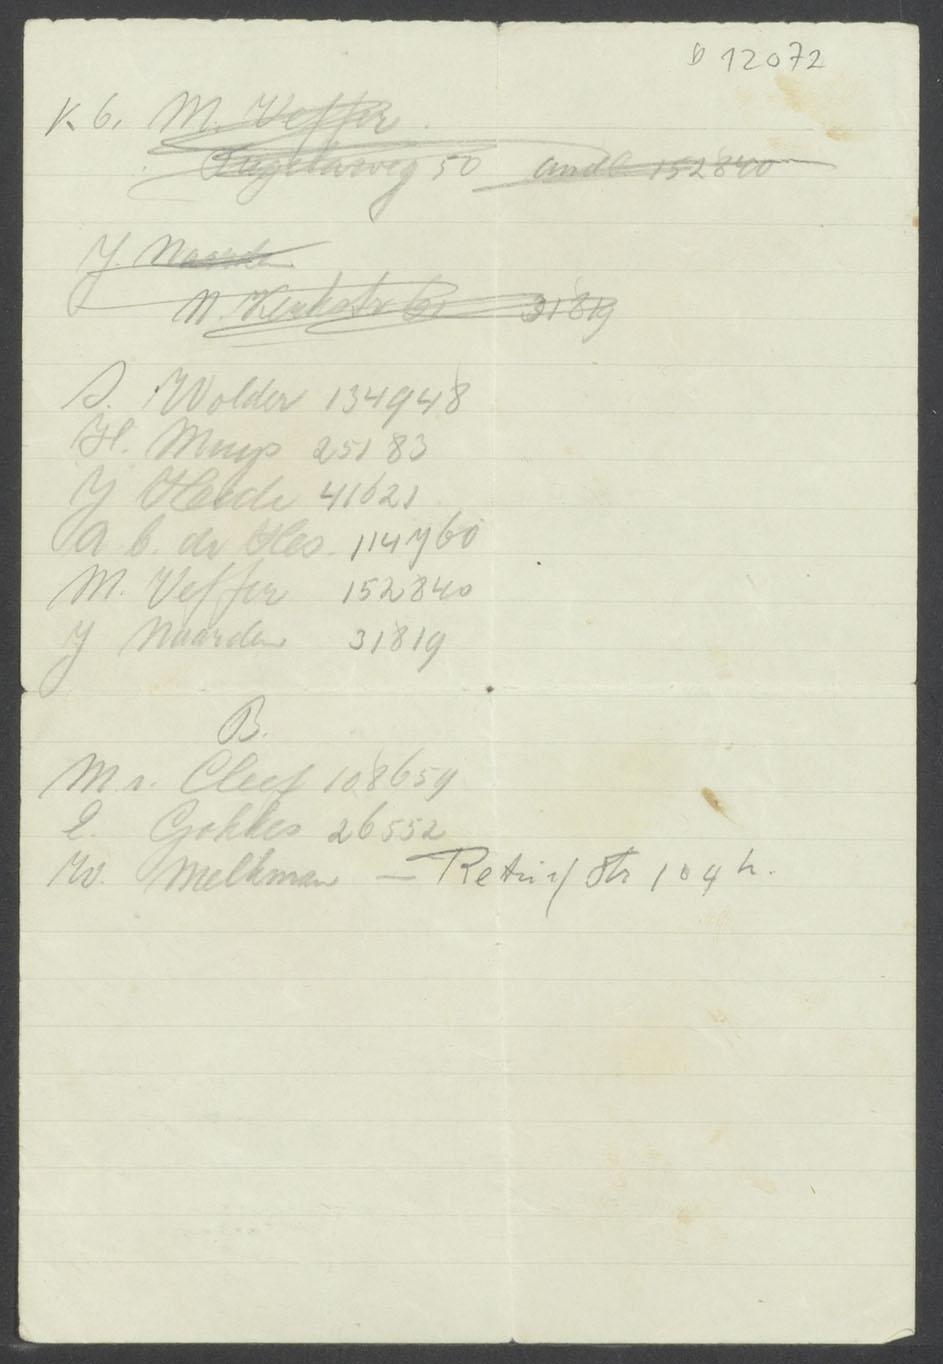 D 12072
K. 6. M. Veffer.
50 152840
J. Naarden
N. Kerkstr 31819
S. Wolder 134948
H. Muijs 25183
J 41621
A b. de Hes. 114760
M. Veffer 152840
J Naarden 31819
B.
M. v. Cleef 108659
E. Gokkes 26552
W. Melkman — Retief Str 104 h.